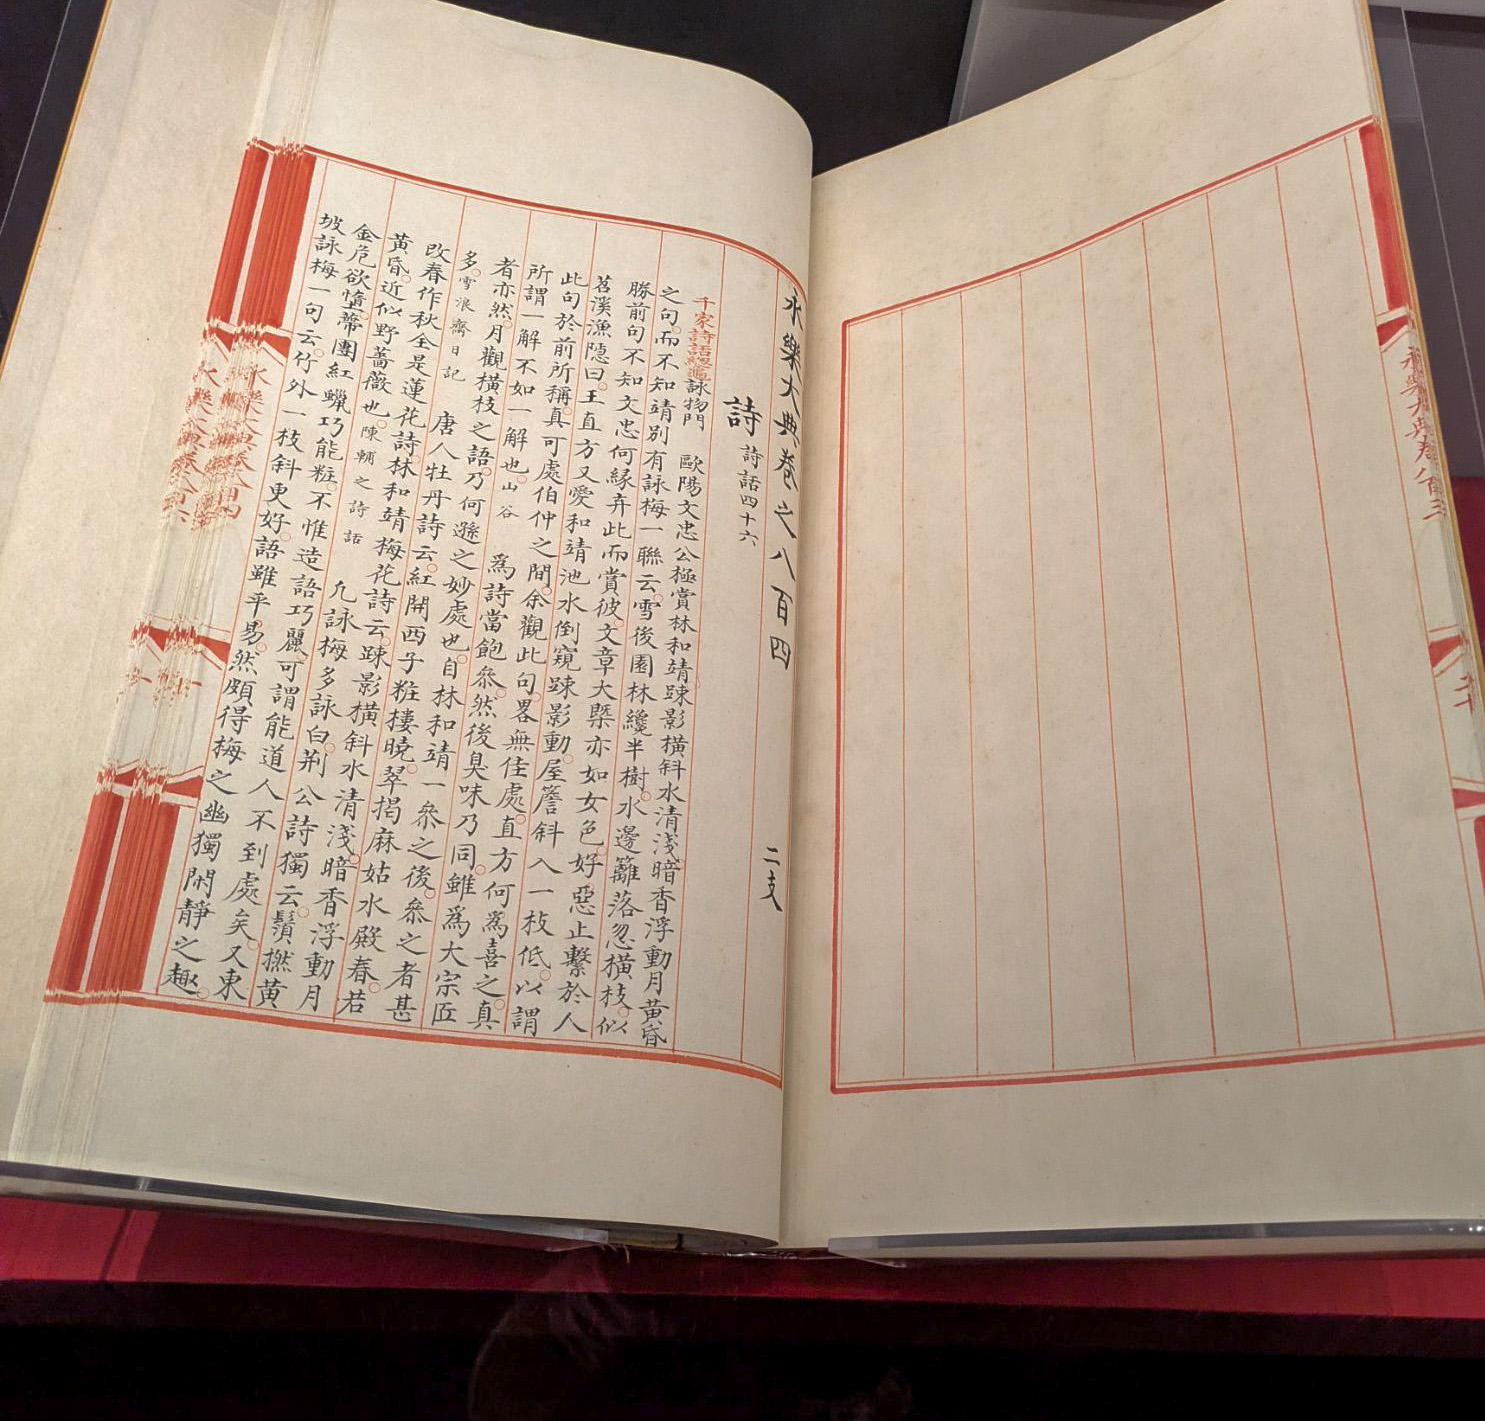 永樂大典卷八百三
永樂大典卷之八百四 二支
詩 詩話四十六
千家詩話總龜詠物門 歐陽文忠公極賞林和靖踈影橫斜水清淺暗香浮動月黃昏
之句。而不知靖別有詠梅一聯云。雪後園林纔半樹。水邊籬落忽橫枝。似
勝前句不知文忠何緣弃此而賞彼。文章大槩亦如女色。好惡止繫於人
苕溪漁隱曰。王直方又愛和靖池水倒窺踈影動。屋簷斜入一枝低。以謂
此句於前所稱。真可處伯仲之間。余觀此句。畧無佳處。直方何爲喜之。真
所謂一解不如一解也。山谷 爲詩當飽參。然後臭味乃同。雖爲大宗匠
者亦然。月觀橫枝之語。乃何遜之妙處也。自林和靖一參之後。參之者甚
多。雪浪齋日記 唐人牡丹詩云。紅開西子粧樓曉。翠揭麻姑水殿春。若
改春作秋全是蓮花詩林和靖梅花詩云。踈影橫斜水清淺。暗香浮動月
黃昏。近似野薔薇也。陳輔之詩話 凡詠梅多詠白。荊公詩獨云。鬚撚黃
金危欲墮。蔕團紅蠟巧能粧。不惟造語巧麗。可謂能道人不到處矣。又東
坡詠梅一句云。竹外一枝斜更好。語雖平易。然頗得梅之幽獨閑靜之趣。
永樂大典卷八百四